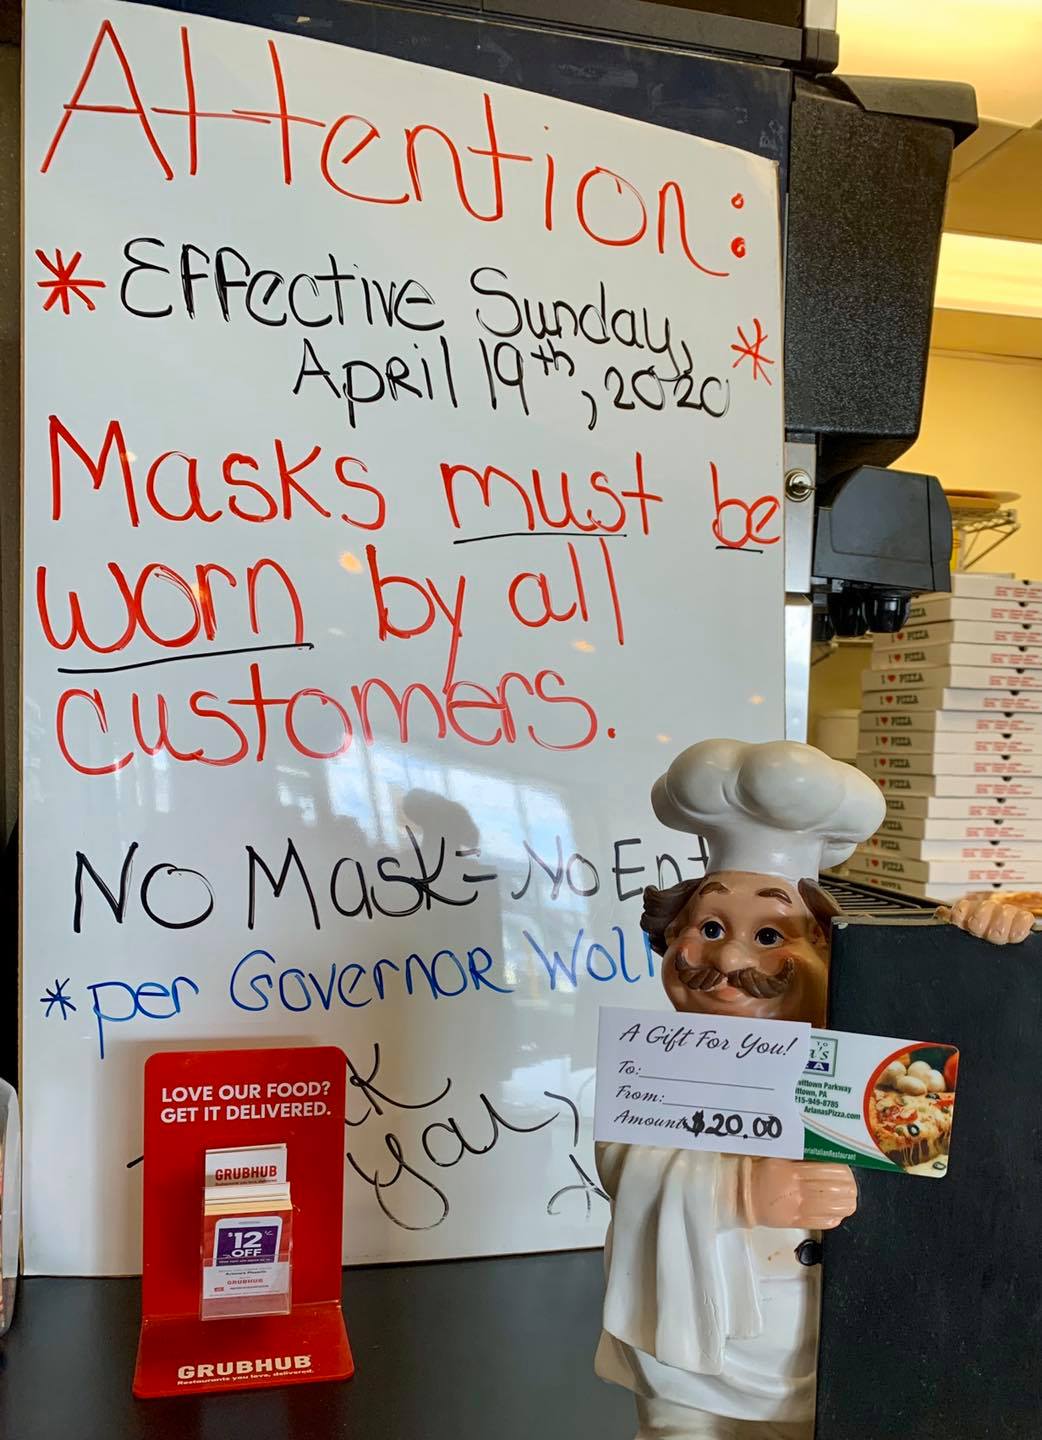 Attention:
* Effective Sunday, *
April 19th, 2020
Masks must be
worn by all
customers.
No Mask = No Ent
* per Governor Wolf
k
you,
LOVE OUR FOOD?
GET IT DELIVERED.
GRUBHUB
$12
OFF
GRUBHUB
GRUBHUB
Restaurants you love, delivered.
A Gift For You!
To:
From:
Amount $20.00
TO
a's
ZA
vittown Parkway
ittown, PA
215-949-8785
ArianasPizza.com
I ♥ PIZZA
I ♥ PIZZA
I ♥ PIZZA
I ♥ PIZZA
I ♥ PIZZA
I ♥ PIZZA
I ♥ PIZZA